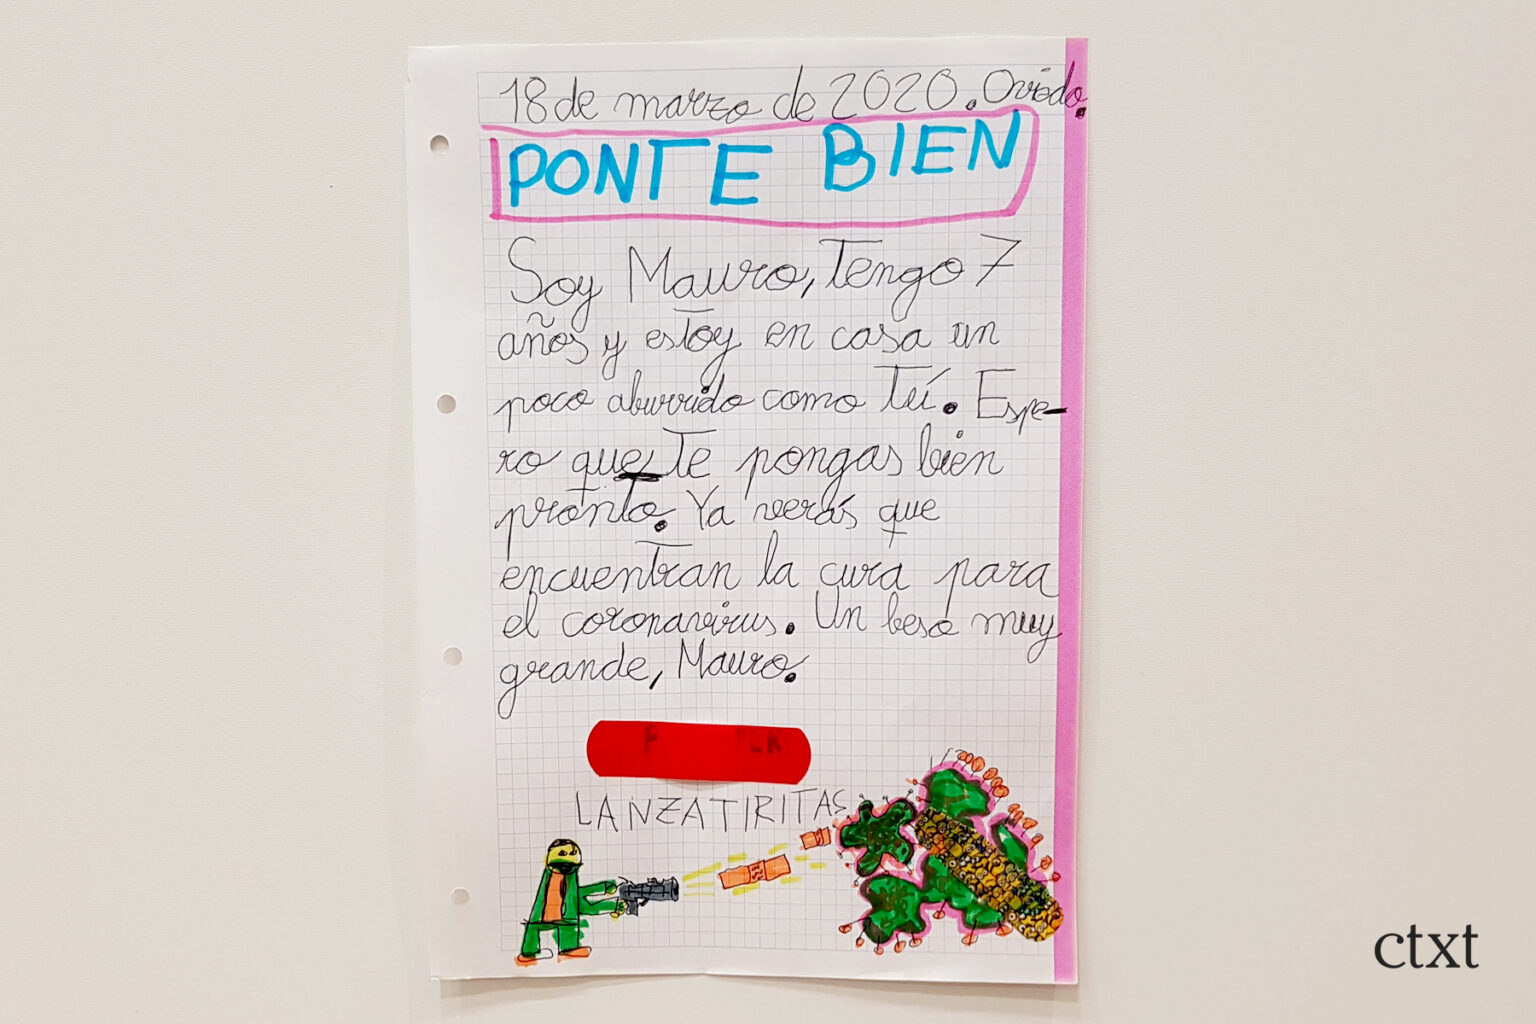 18 de marzo de 2020. Oviedo.
PONTE BIEN
Soy Mauro, Tengo 7
años y estoy en casa un
poco aburrido como Tú. Espe-
ro que Te pongas bien
pronto. Ya verás que
encuentran la cura para
el coronavirus. Un beso muy
grande, Mauro.
LANZATIRITAS
ctxt